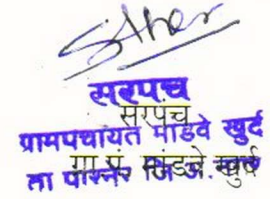 सरपंच
सरपंच
ग्रामपंचायत मांडवे खुर्द
ग्रा.पं. मांडवे खुर्द
ता पारनेर जि अ. नगर